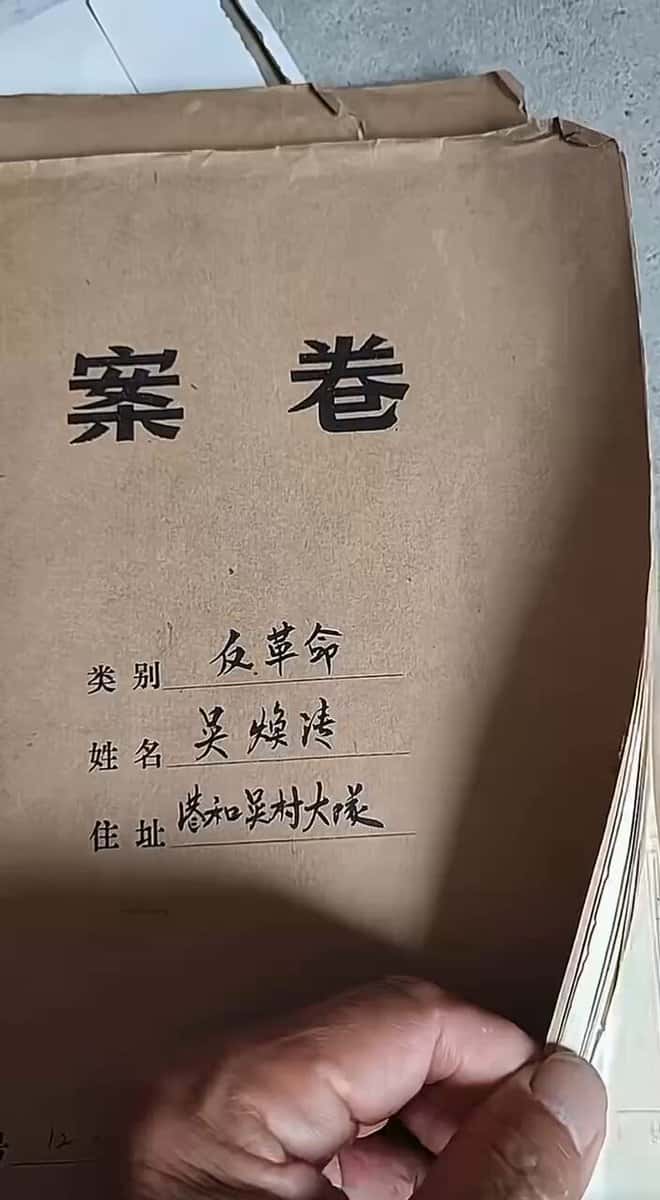 案卷
类别 反革命
姓名 吴焕清
住址 港和吴村大队
12